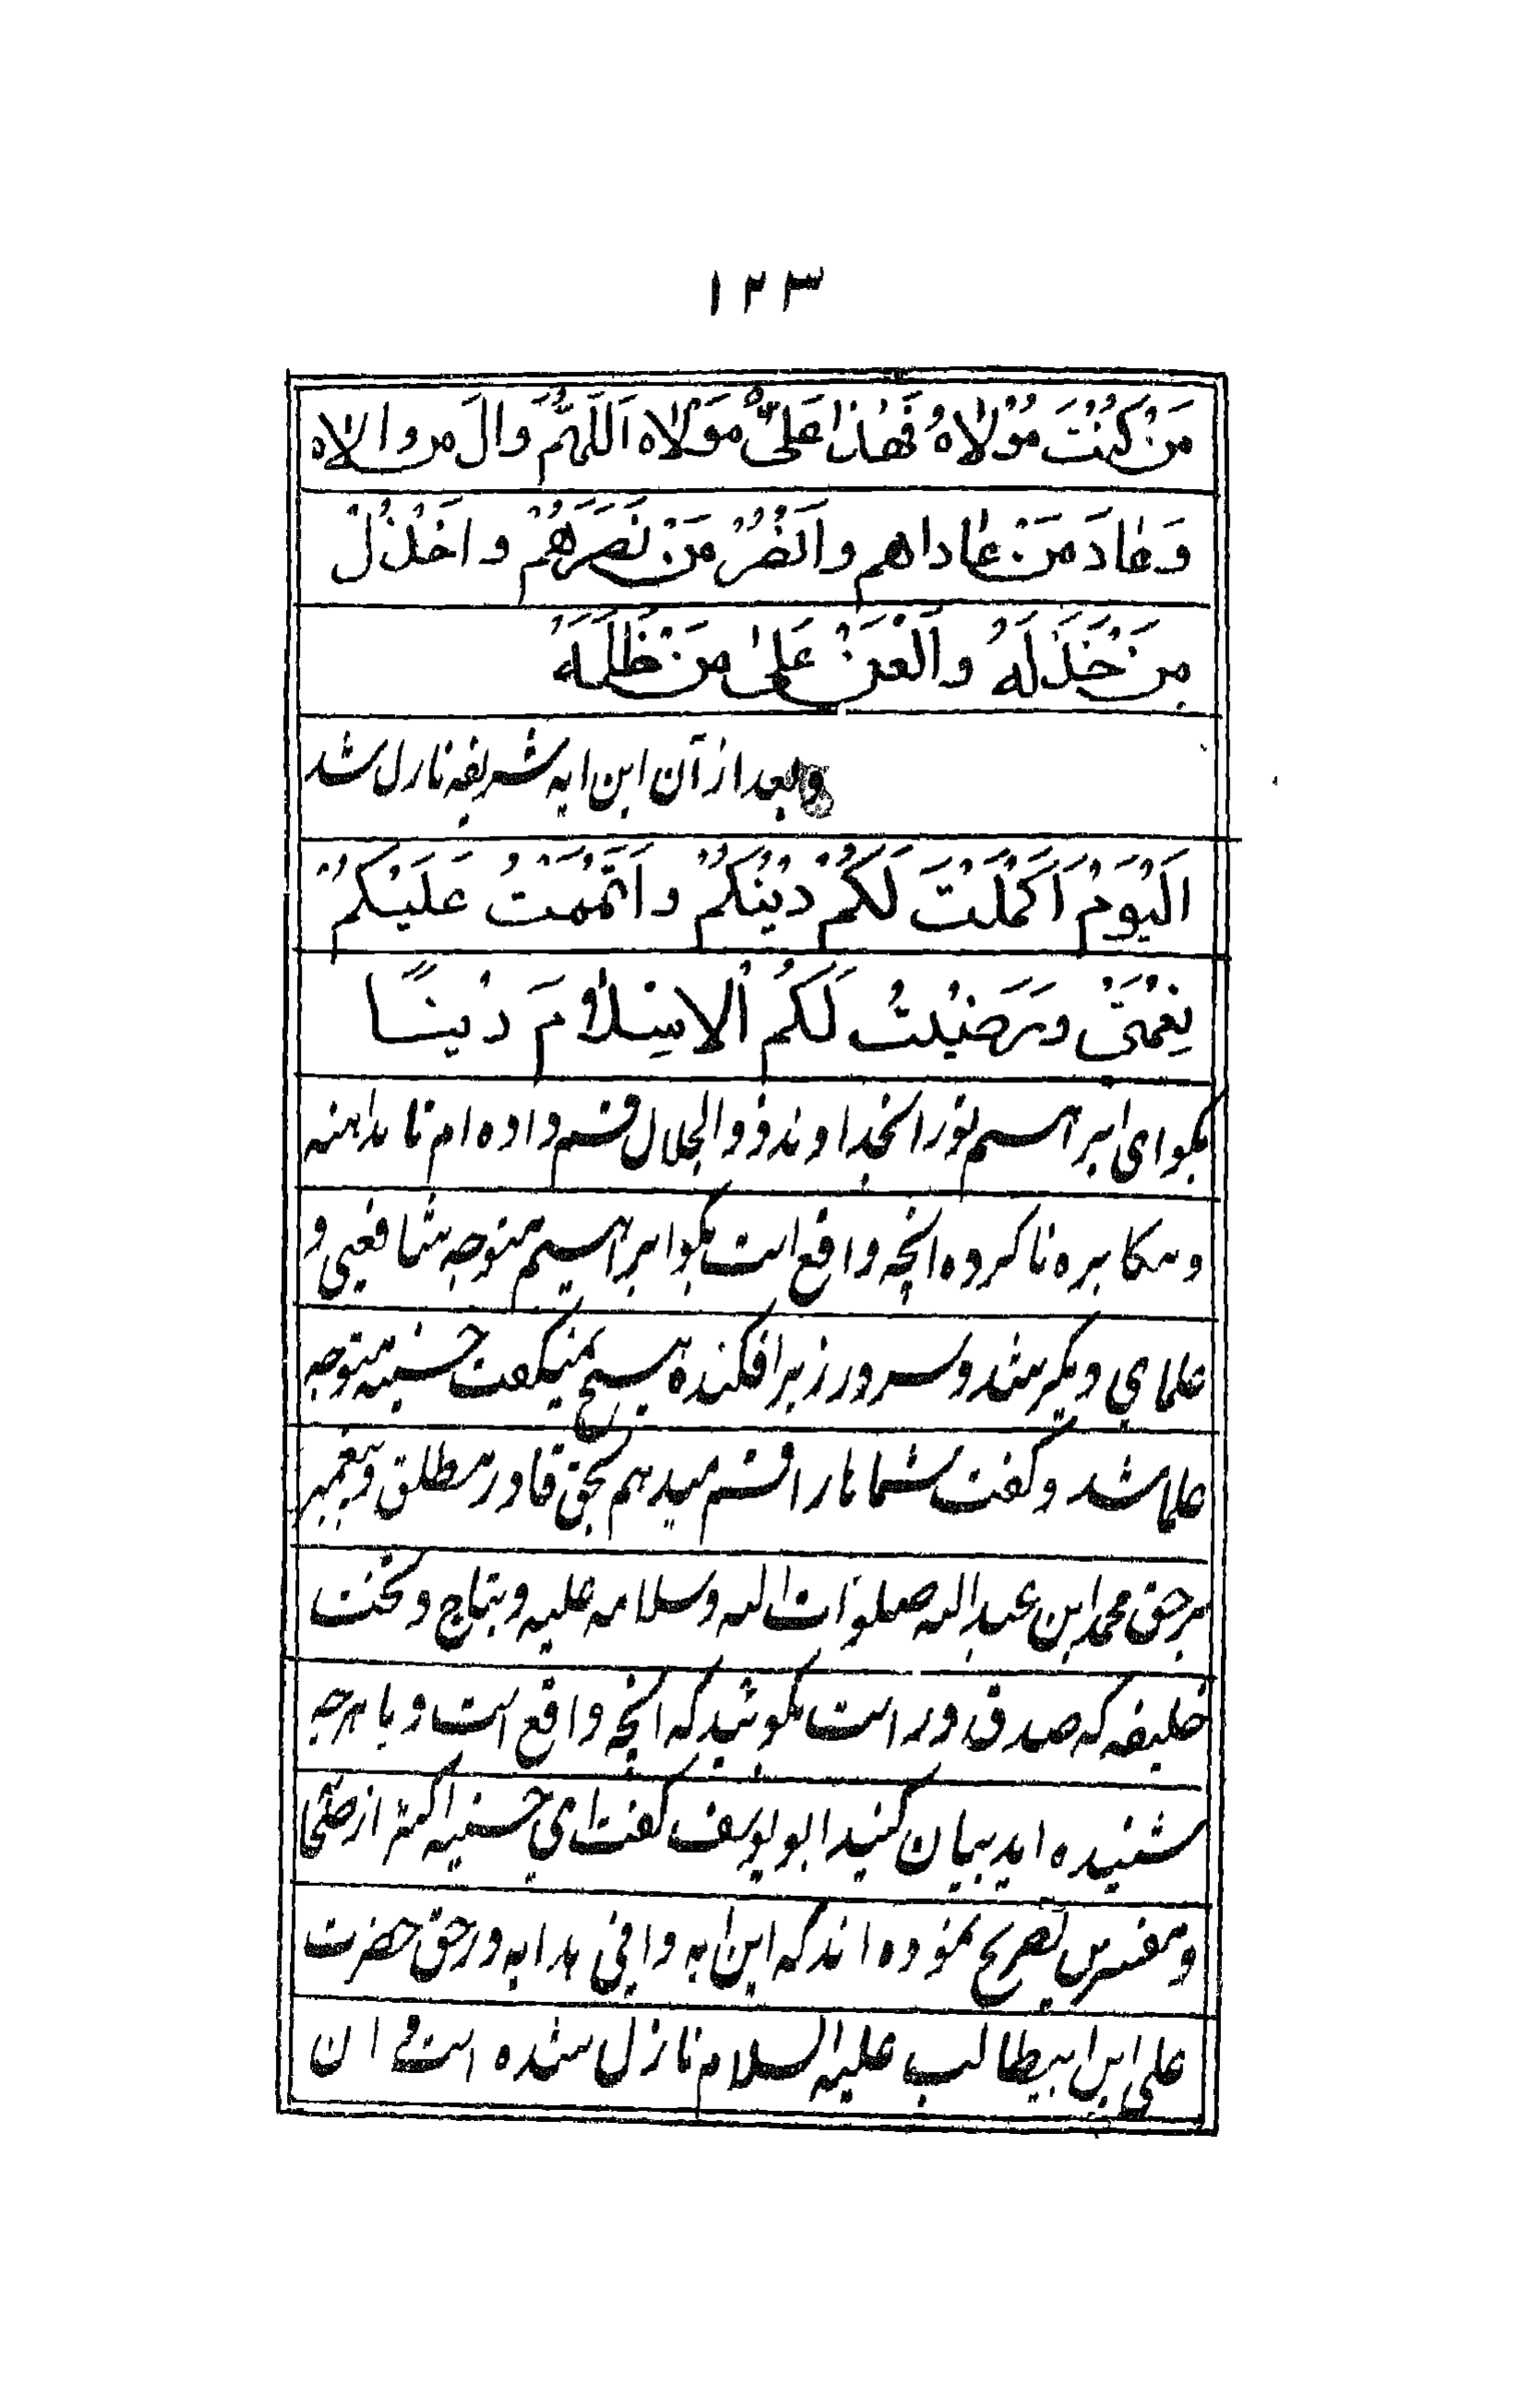 ١٢٣
مَنْ كُنْتَ مُوْلاٰهُ فَهٰذٰا عَلیٌّ مَوْلاٰه اَللّهُمَّ وَالَ من والاه
وَعٰادَ مَنْ عٰاداهم واَنْصُرْ مَنْ نَصَرَهُمْ واخْذُلْ
مِنَ خَذَلَهُ واَلْعَنْ عَلیٰ مَنْ ظَلَمَهُ
وبعد از آن این ایه شریفه نازل شد
اَلْیَوْمْ اَکْمَلْتَ لَکُمْ دیْنُکُمْ واَتْمَمْتُ عَلَیْکُمْ
نِعْمَتیْ ورَضیْتُ لَکُمُ الْاسِلاٰمَ دیْنًا
بکو ای ابراهیم تو را بخداوند ذوالجلال قسم داده ام تا مداهنه
ومکابره نا کرده انچه واقع است بکو ابراهیم متوجه شافعی و
علمای دیکر شد وسر در زبر افکنده هیچ نمیکفت حسنیه متوجه
علما شد وکفت شما هارا قسم میدهم بحق قادر مطلق وپیغمبر
برحق محمد ابن عبدالله صلوات الله وسلامه علیه وبتاج وتخت
خلیفه که صدق ورراست بکوئید که انچه واقع است وبا هرچه
شنیده اید بیان کنید ابو یوسف کفت ای حسنیه اکثر از صحا
ومفسرین تصریح نموده اند که این ایه وافی هدایه در حق حضرت
علی ابن ابیطالب علیه السلام نازل شده است و ان